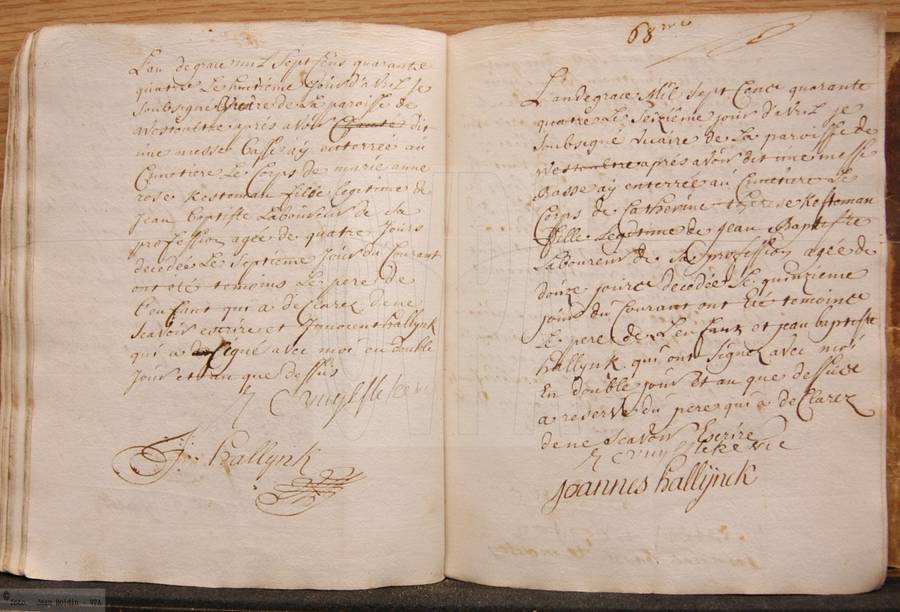 L'an de grace mil sept sens quarante
quatre le huitième jour d'avril je
soubsigné vicaire de la paroisse de
westoultre après avoir chanté dit
une messe basse ay enterrée au
Cimetiere le Corps de marie anne
rose Kestoman fille legitime de
Jean baptiste Laboureur de sa
profession agée de quatre jours
decedée le septieme jour du Courant
ont eté temoins le pere de
l'enfant qui a declarez dene
scavoir escrire et Innocent hallynk
qui a signé avec moi en double
jour et an que dessus
hallynk
68
L'an de grace Mil sept Cence quarante
quatre le seizième jour d'avril je
soubsigné vicaire de la paroisse de
westoultre après avoir dit une messe
Basse ay enterrée au Cimetiere le
Corps de Catherine therese Kestoman
fille Legitime de jean Baptiste
Laboureur de sa profession agée de
douze jource decedée le quinzieme
jour du Courant ont été temoince
le pere de L'enfant et jean baptiste
hallynk qui ont signez avec moi
En double jour et an que dessuce
a reserve du pere qui a declarez
dene scavoir Escrire
joannes hallijnck